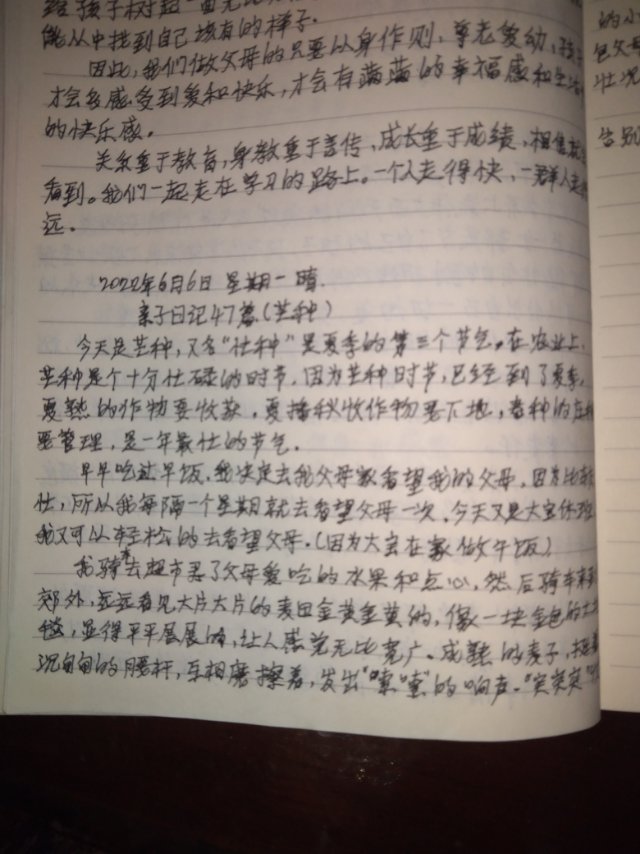 给孩子树起一面
能从中找到自己该有的样子.
因此,我们做父母的只要以身作则,尊老爱幼,孩子
才会多感受到爱和快乐,才会有满满的幸福感和
的快乐感。
关系重于教育,身教重于言传,成长重于成绩,相信就
看到。我们一起走在学习的路上。一个人走得快,一群人走
远。
2022年6月6日 星期一晴.
亲子日记47篇(芒种)
今天是芒种,又名“忙种”是夏季的第三个节气。在农业上,
芒种是个十分忙碌的时节,因为芒种时节,已经到了夏季,
夏熟的作物要收获,夏播秋收作物要下地,春种的庄稼
要管理,是一年最忙的节气.
早早吃过早饭,我决定去我父母家看望我的父母,因为比较
忙,所以我每隔一个星期就去看望父母一次.今天又是大宝休班
我又可以轻松的去看望父母.(因为大宝在家做午饭)
我骑车去超市买了父母爱吃的水果和点心,然后骑车来到
郊外,远远看见大片大片的麦田金黄金黄的,像一块金色的大地
毯,显得平平展展的,让人感觉无比宽广.成熟的麦子,挺着
沉甸甸的腰杆,互相磨擦着,发出“嚓嚓”的响声.“突突突”
的小
包
壮况
告别